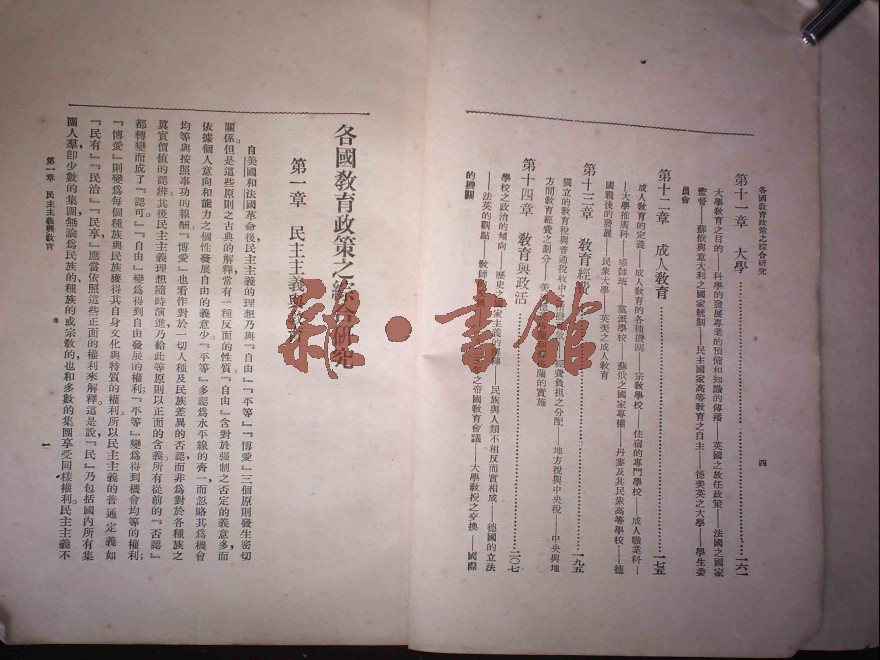 各國敎育政策之綜合硏究
四
第十一章 大學……一六一
大學敎育之目的——科學的發展專業的預備和知識的傳播——英國之放任政策——法國之國家
監督——蘇俄與意大利之國家統制——民主國家高等敎育之自主——德美英之大學——學生委
員會
第十二章 成人敎育……一七五
成人敎育的定義——成人敎育的各種機關——宗敎學校——住宿的專門學校——成人職業科——
——大學推廣科——導師班——黨派學校——蘇俄之國家專權——丹麥及其民衆高等學校——德
國戰後的發展——民衆大學——英美之成人敎育
第十三章 敎育經……一九五
獨立的敎育稅與普通稅收中之——經費負担之分配——地方稅與中央稅——中央與地
方間敎育經費之劃分——美——蘭的實施
第十四章 敎育與政活……二〇七
學校之政治的傾向——歷史之國家主義的——民族與人類不相反而實相成——德國的立法
——法英的觀點——敎師——之帝國敎育會議——大學敎授之交換——國際
的機關
各國敎育政策之綜合硏究
第一章 民主主義與
自美國和法國革命後，民主主義的理想乃與『自由』『平等』『博愛』三個原則發生密切
關係。但是這些原則之古典的解釋常有一種反面的性質。『自由』含對於强制之否定的義意多，而
依據個人意向和能力之個性發展自由的義意少。『平等』多認爲水平線的齊一，而忽略其爲機會
均等與按照事功的報酬。『博愛』也看作對於一切人種及民族差異的否認，而非爲對於各種族之
眞實價值的認辨。其後民主主義理想隨時演進，乃給此等原則以正面的含義。所有從前的『否認』
都轉變而成了『認可。』『自由』變爲得到自由發展的權利；『平等』變爲得到機會均等的權利；
『博愛』則變爲每個種族與民族獲得其自身文化與特質的權利。所以民主主義的普通定義如
『民有』『民治』『民享，』應當依照這些正面的權利來解釋。這是說『民』乃包括國內所有集
團人羣，卽少數的集團，無論爲民族的、種族的或宗敎的，也和多數的集團享受同樣權利。民主主義不
第一章 民主主義與敎育
一
雜·書館